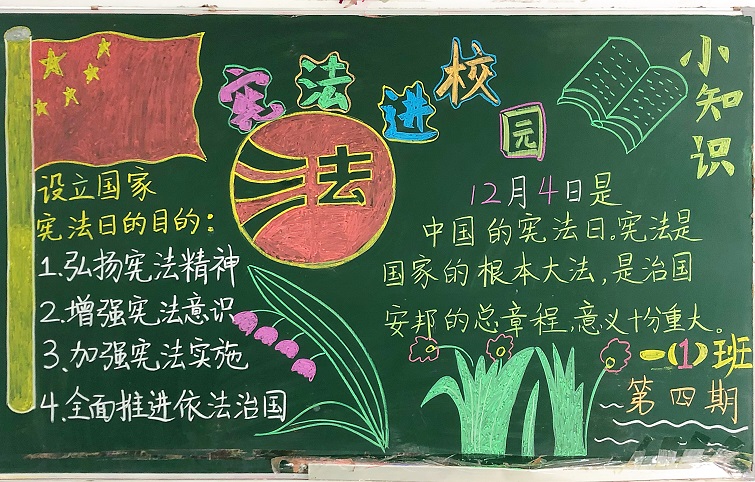 宪法进校园
小知识
法
设立国家
宪法日的目的：
1.弘扬宪法精神
2.增强宪法意识
3、加强宪法实施
4.全面推进依法治国
12月4日是
中国的宪法日。宪法是
国家的根本大法，是治国
安邦的总章程，意义十分重大。
一(1)班
第四期